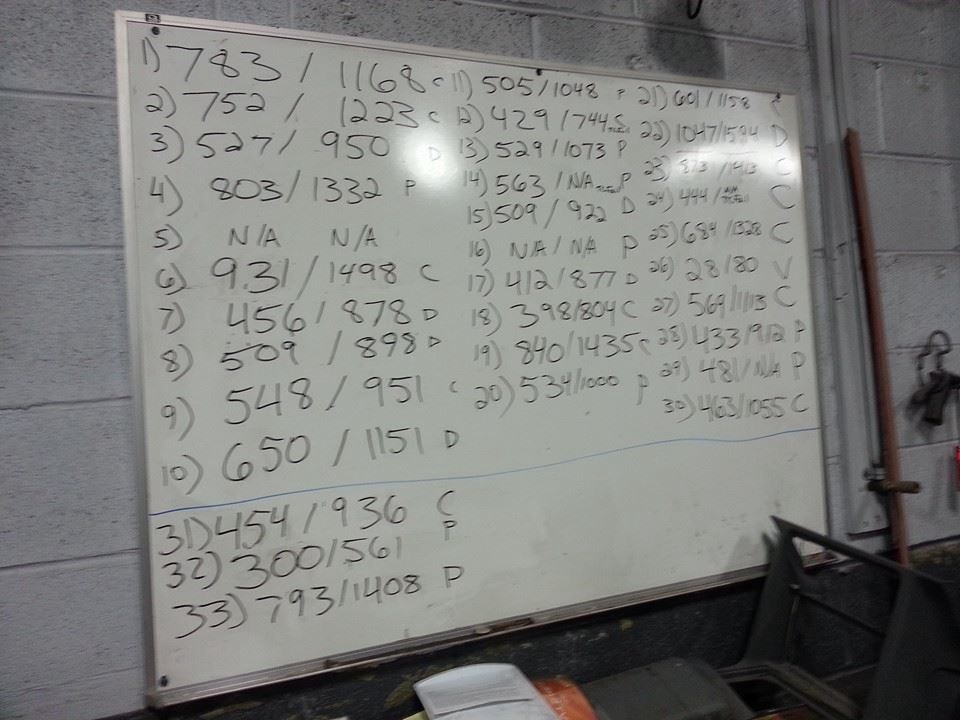 1) 783 / 1168 C
2) 752 / 1223 C
3) 527 / 950 D
4) 803 / 1332 P
5) N/A N/A
6) 931 / 1498 C
7) 456 / 878 D
8) 509 / 898 D
9) 548 / 951 C
10) 650 / 1151 D
11) 505/1048 P
12) 429/744 C
13) 529/1073 P
14) 563 / N/A P
15) 509 / 922 D
16) NA / NA P
17) 412/877 D
18) 398/804 C
19) 840/1435 C
20) 534/1000 P
21) 601/1158 C
22) 1047/1594 D
23) 873/1413 C
24) 444/ C
25) 684/1328 C
26) 28/80 V
27) 569/1113 C
28) 433/912 P
29) 481/N/A P
30) 463/1055 C
31) 454/936 C
32) 300/561 P
33) 793/1408 P